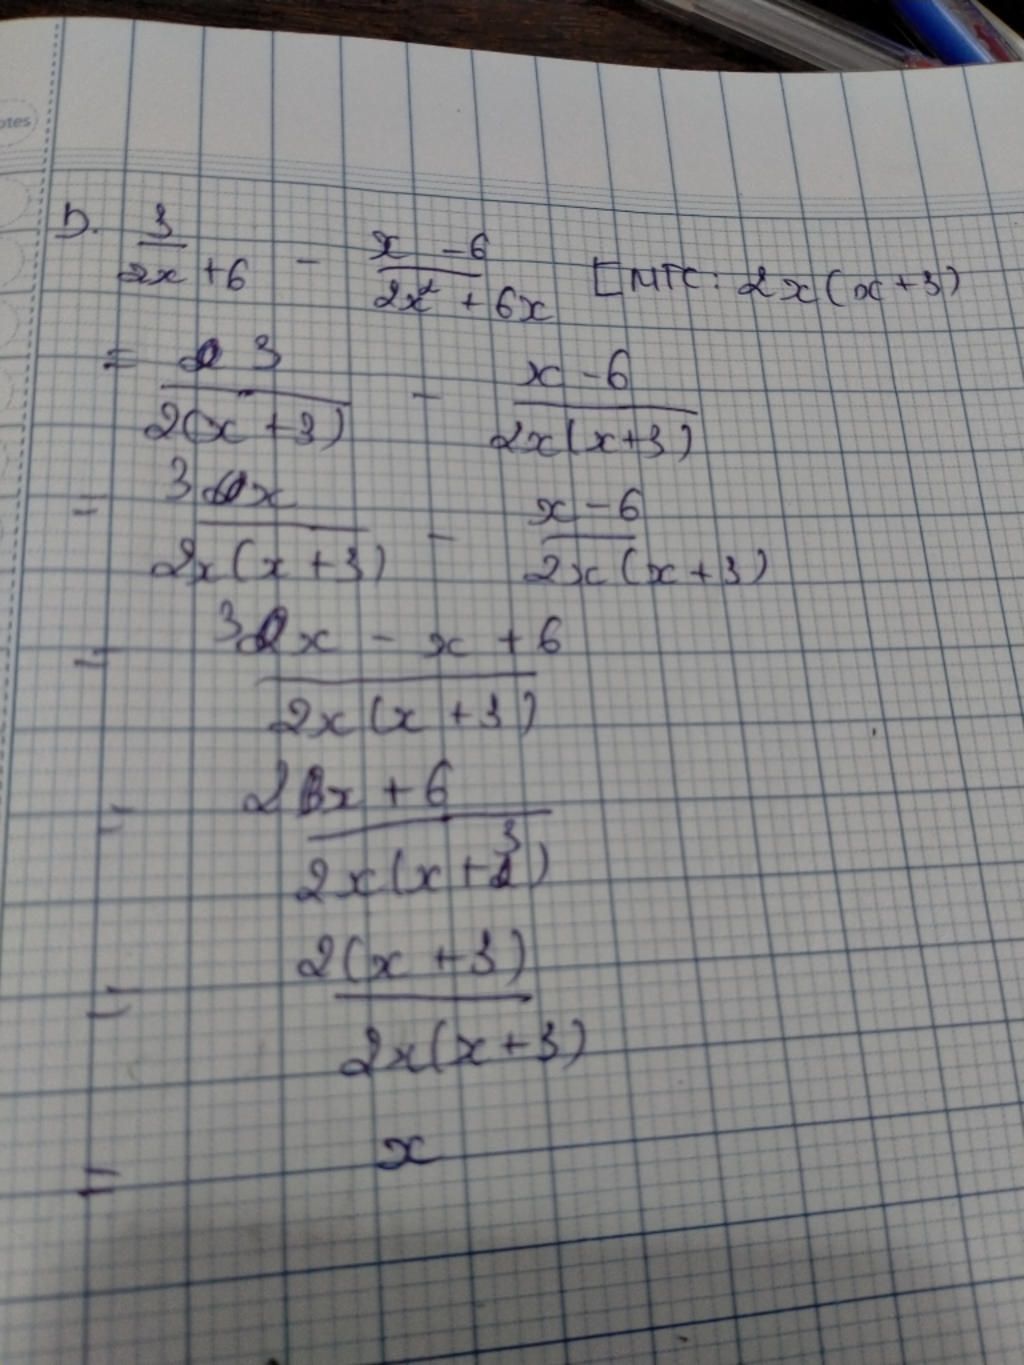 otes
D. 3/(2x + 6) - (x - 6)/(2x² + 6x) [MTC: 2x(x+3)
= 3/(2(x + 3)) - (x - 6)/(2x(x+3))
= 3x/(2x(x + 3)) - (x - 6)/(2x(x + 3))
= (3x - x + 6)/(2x(x + 3))
= (2x + 6)/(2x(x + 3))
= 2(x + 3)/(2x(x + 3))
= x